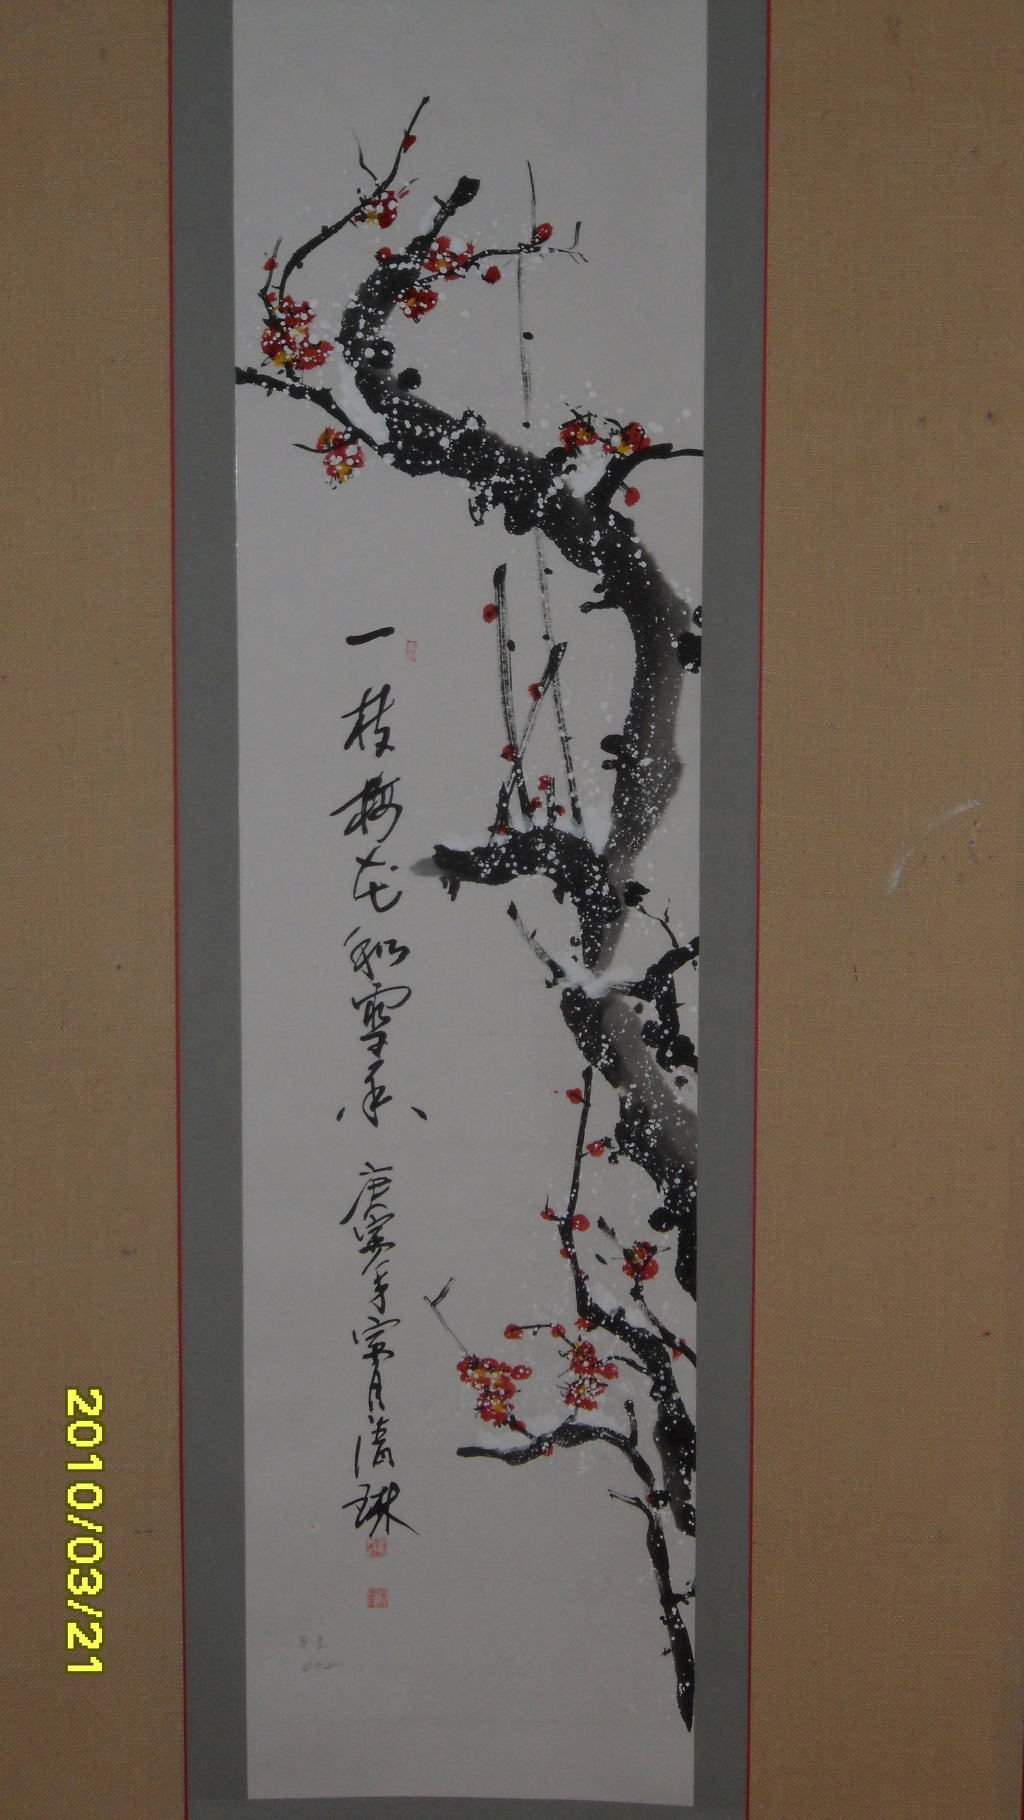 一枝梅花和雪香 庚寅年寅月清琳
2010/03/21